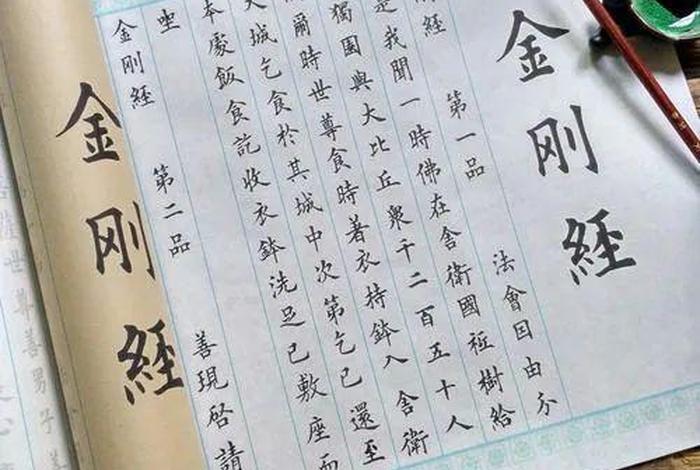 金刚經
經 第一品 法會因由分
是我聞一時佛在舍衛國祗樹給
獨園與大比丘衆千二百五十人
爾時世尊食時著衣持鉢入舍衛
大城乞食於其城中次第乞已還至
本處飯食訖收衣鉢洗足已敷座而
坐
金刚經 第二品 善現啓請
金刚經
世尊善男子善